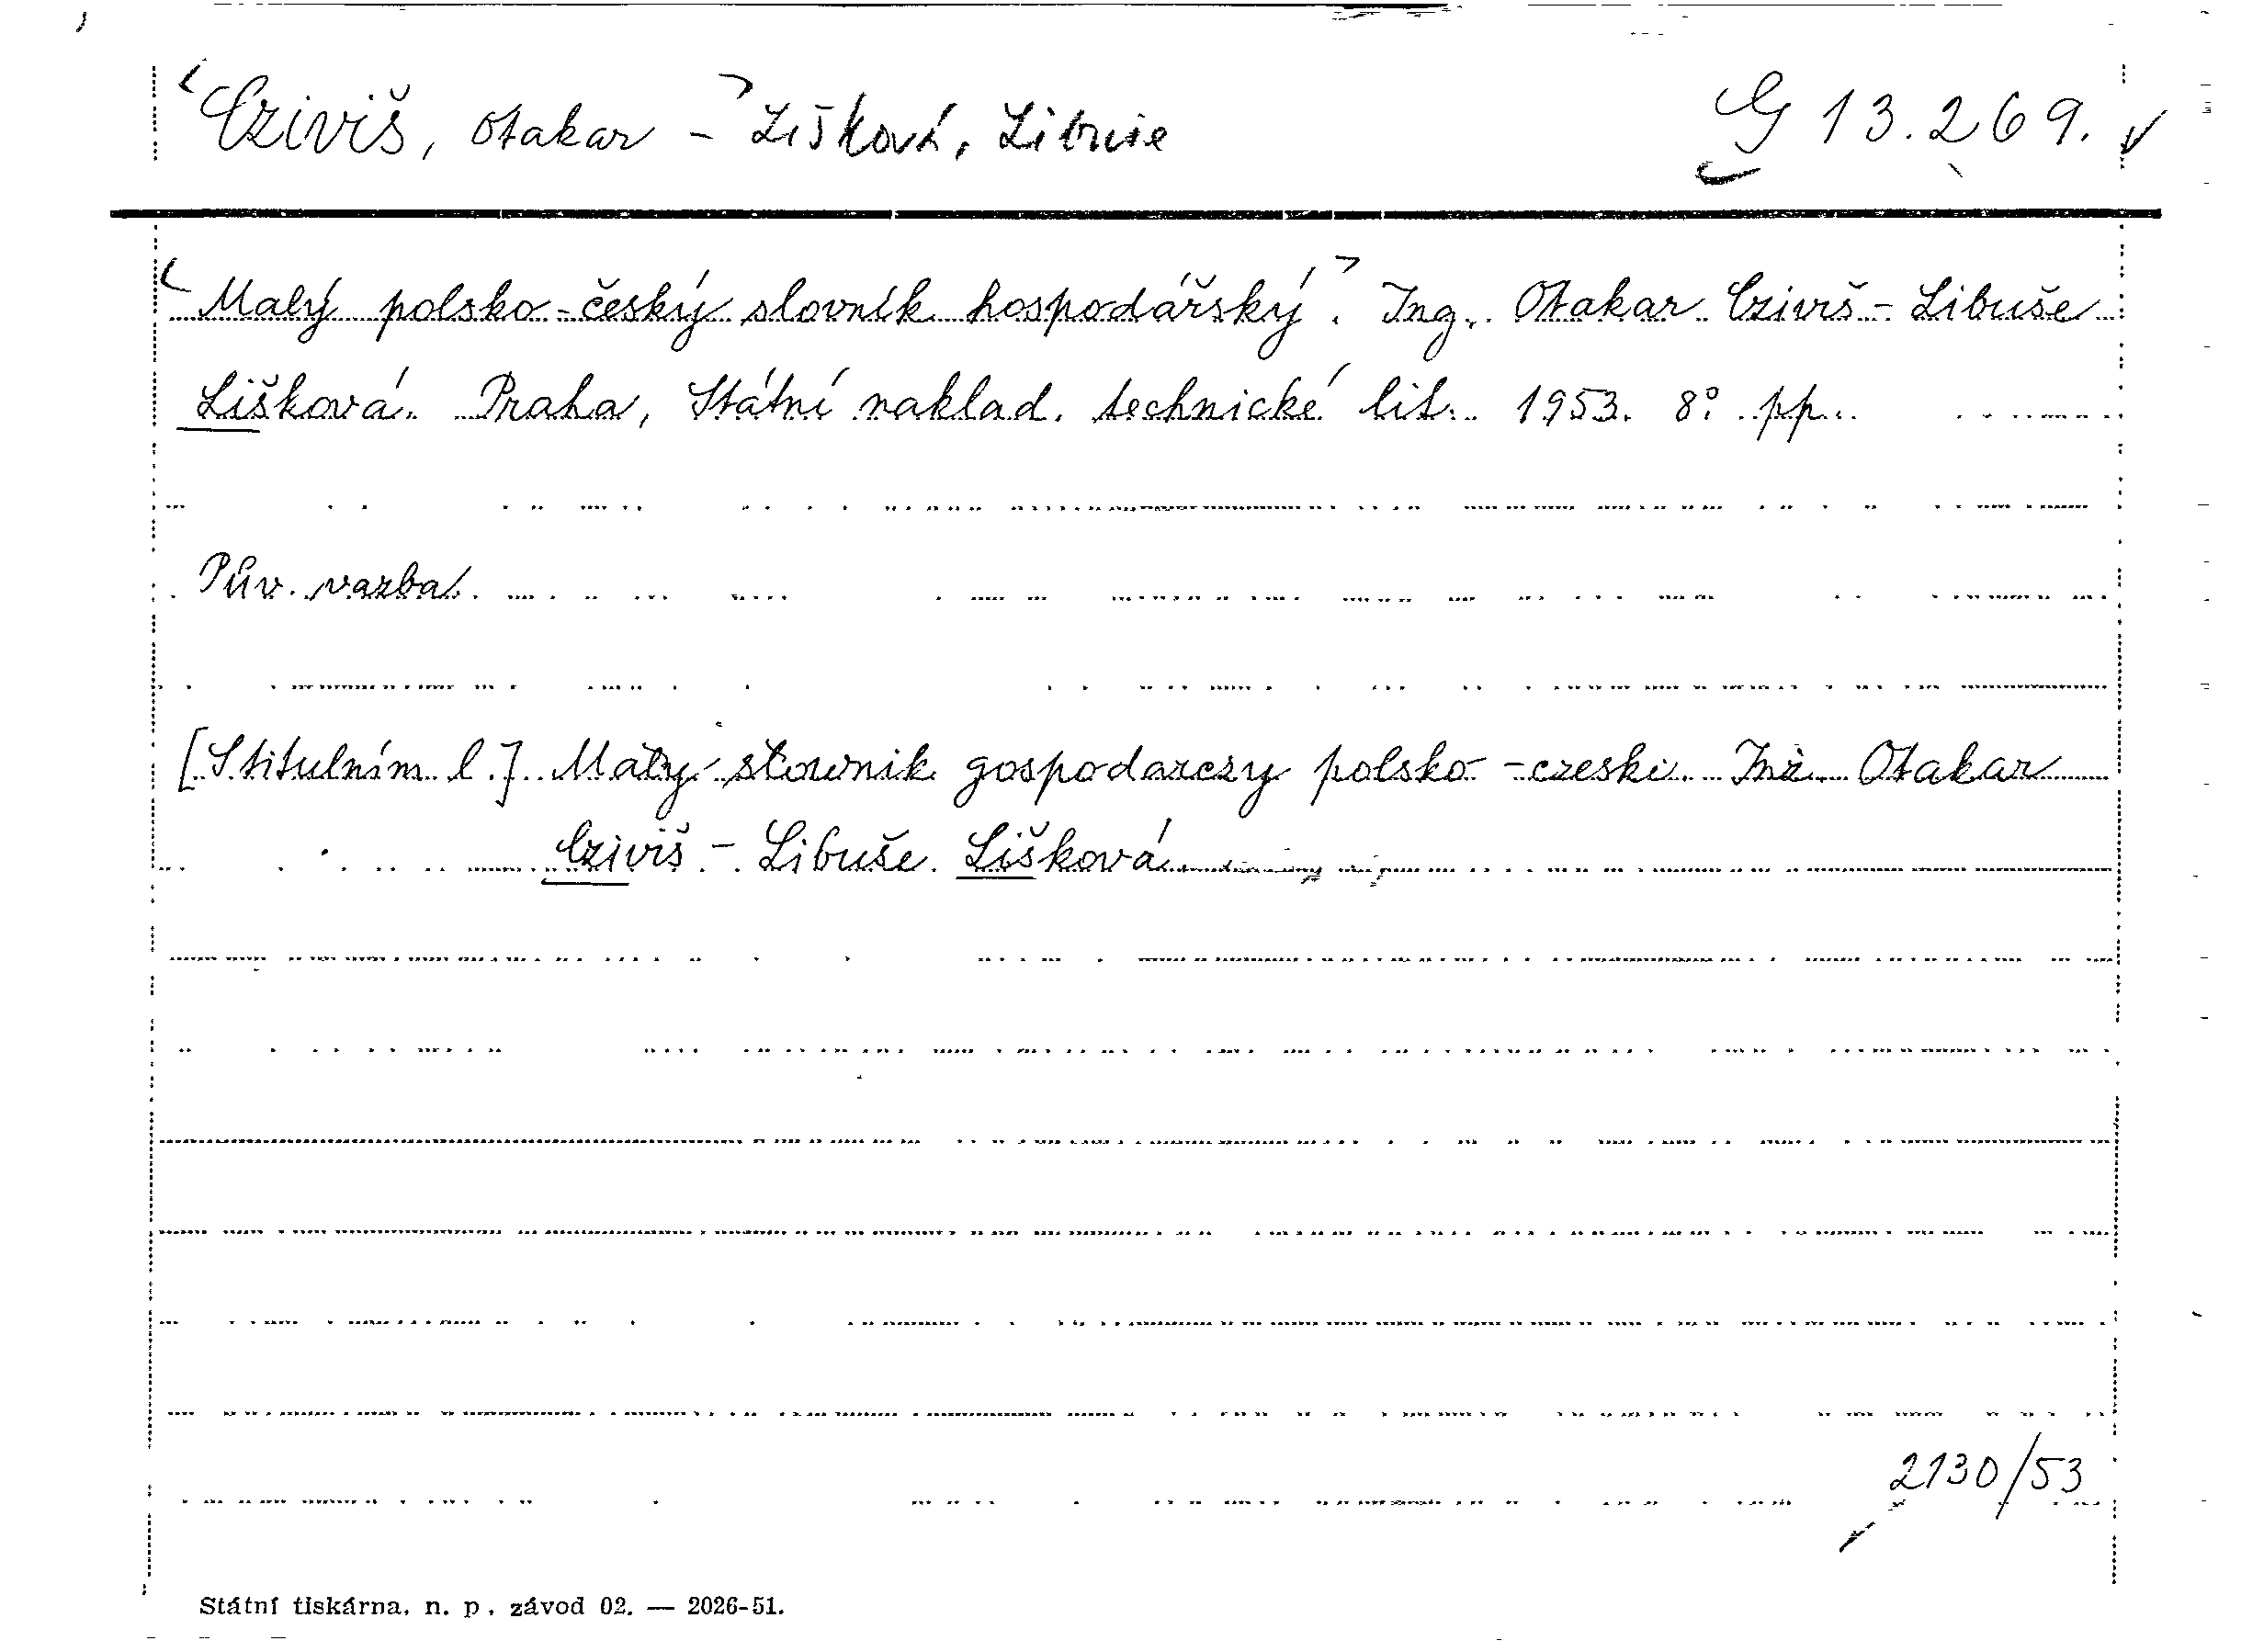 Cziviš, Otakar - Lišková, Libuše
G 13.269.
Malý polsko-český slovník hospodářský. Ing. Otakar Cziviš - Libuše
Lišková. Praha, Státní naklad. technické lit. 1953. 8° pp.
Pův. vazba.
[S titulním l.] Mały słownik gospodarczy polsko-czeski. Inż. Otakar
Cziviš - Libuše Lišková.
2130/53
Státní tiskárna, n. p., závod 02. — 2026-51.